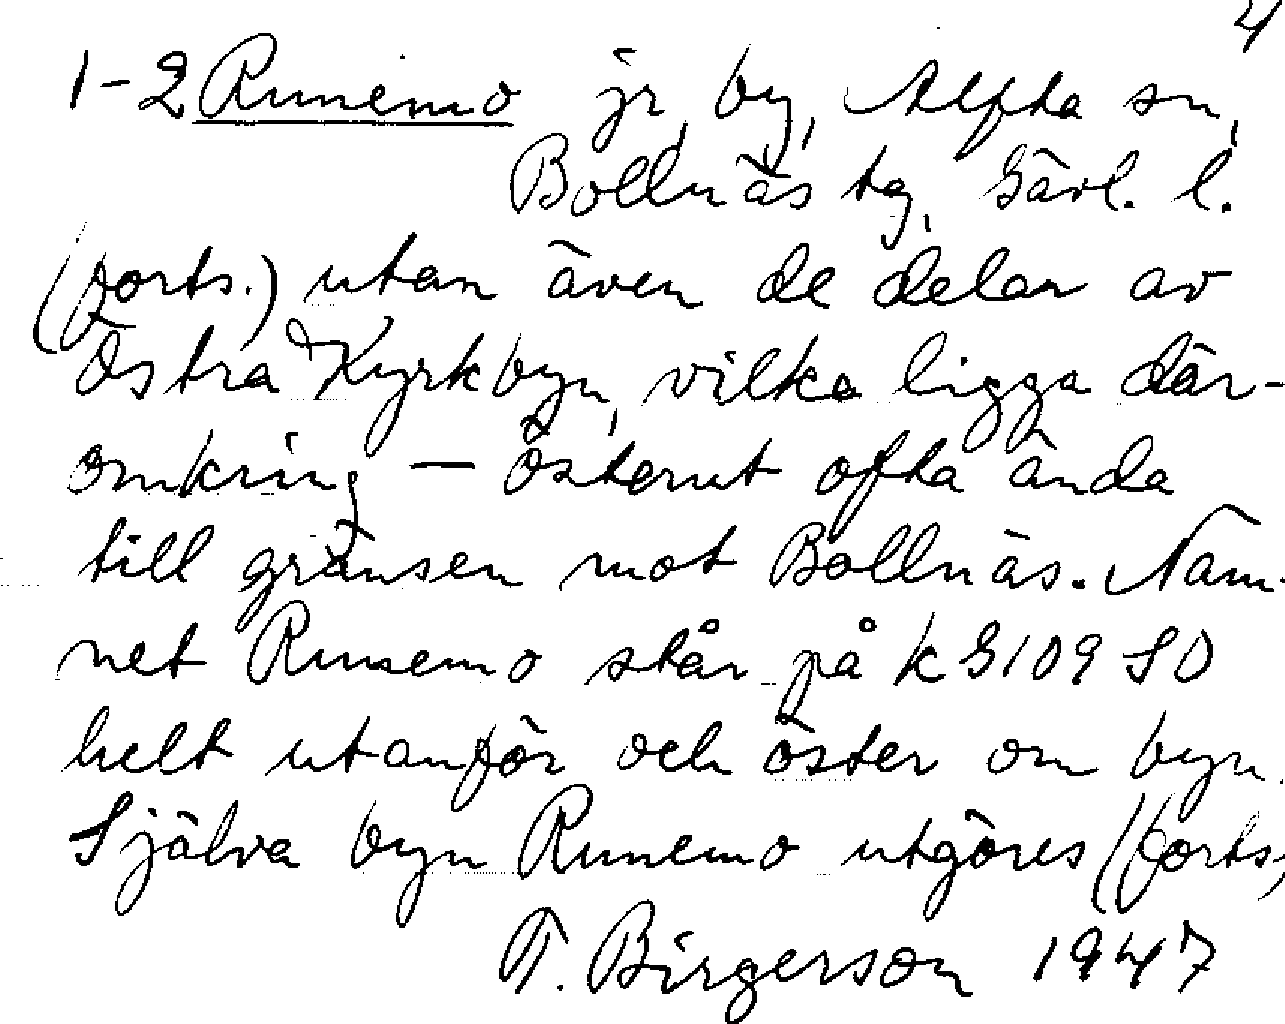 4
1-2 Runemo jr, by, Alfta sn,
Bollnäs tg, Gävl. l.
(forts.) utan även de delar av
Östra Kyrkbyn, vilka ligga där-
omkring — österut ofta ända
till gränsen mot Bollnäs. Nam-
net Runemo står på k G109 SO
helt utanför och öster om byn.
Själva byn Runemo utgöres (forts,
T. Birgerson 1947